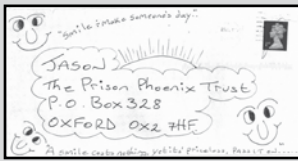 "Smile & make someone's day..
JASON
The Prison Phoenix Trust
P.O. Box 328
OXFORD OX2 7HF
A smile costs nothing yet its priceless, Pass IT on